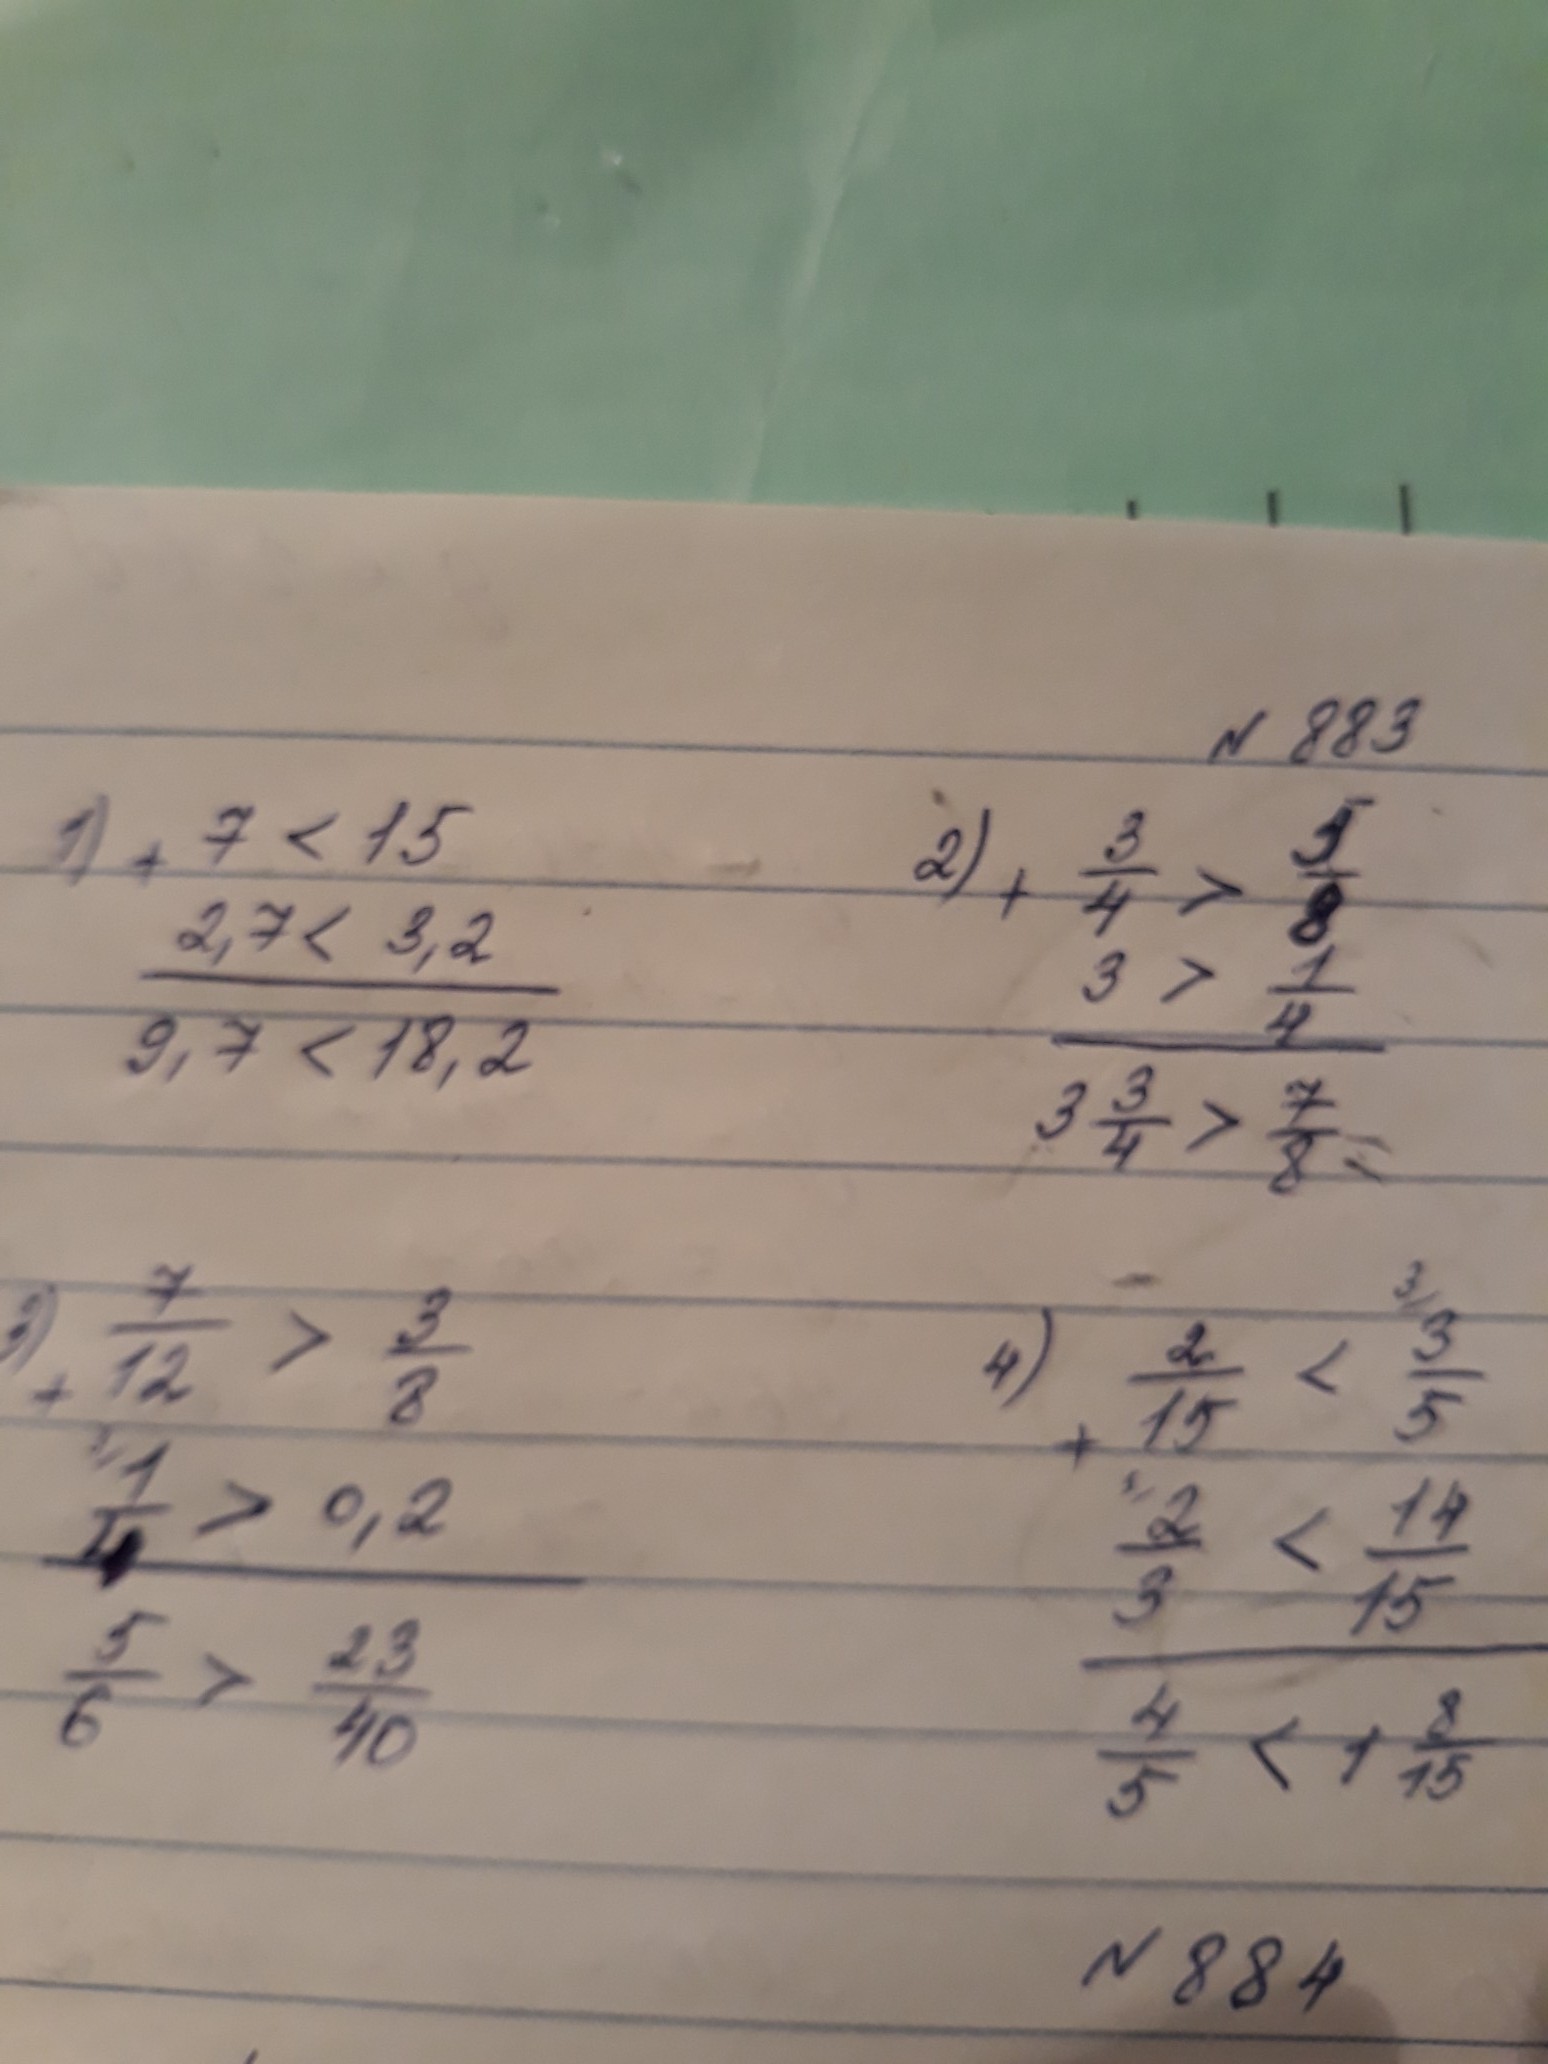 N 883
1) + 7 < 15
2,7 < 3,2
9,7 < 18,2
2) + 3/4 > 5/8
3 > 1/4
3 3/4 > 7/8 =
3) + 7/12 > 3/8
1/4 > 0,2
5/6 > 23/40
4) + 2/15 < 3/ 3/5
2/3 < 14/15
4/5 < 1 8/15
N 884